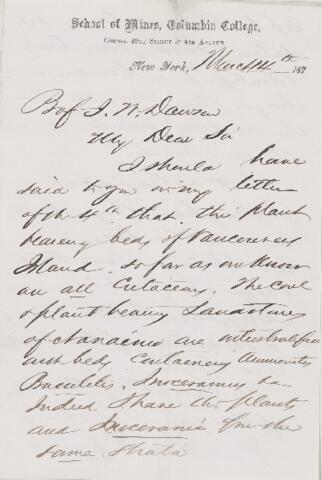 School of Mines, Columbia College,
Corner 49th Street & 4th Avenue
New York, March 14th 187
Prof J. W. Dawson
My Dear Sir
I should have
said to you in my letter
of the 4th that the plant
bearing beds of Vancouvers
Island, so far as we know
are all Cretaceous. The coal
& plant bearing Sandstones
of Nanaimo are interstratified
with beds containing Ammonites
Baculites, Inoceramus &c
Indeed I have the plants
and Inocerami from the
same strata